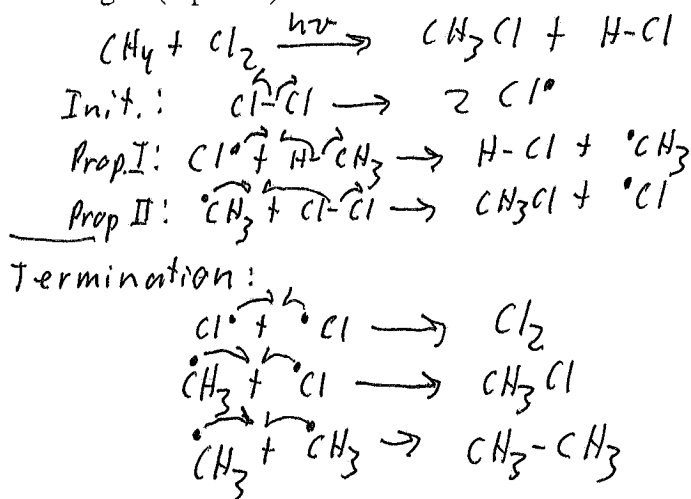 CH4 + Cl2 hν → CH3Cl + H-Cl
Init.: Cl-Cl → 2 Cl•
Prop.I: Cl• + H-CH3 → H-Cl + •CH3
Prop II: •CH3 + Cl-Cl → CH3Cl + •Cl
Termination:
Cl• + •Cl → Cl2
•CH3 + •Cl → CH3Cl
•CH3 + •CH3 → CH3-CH3